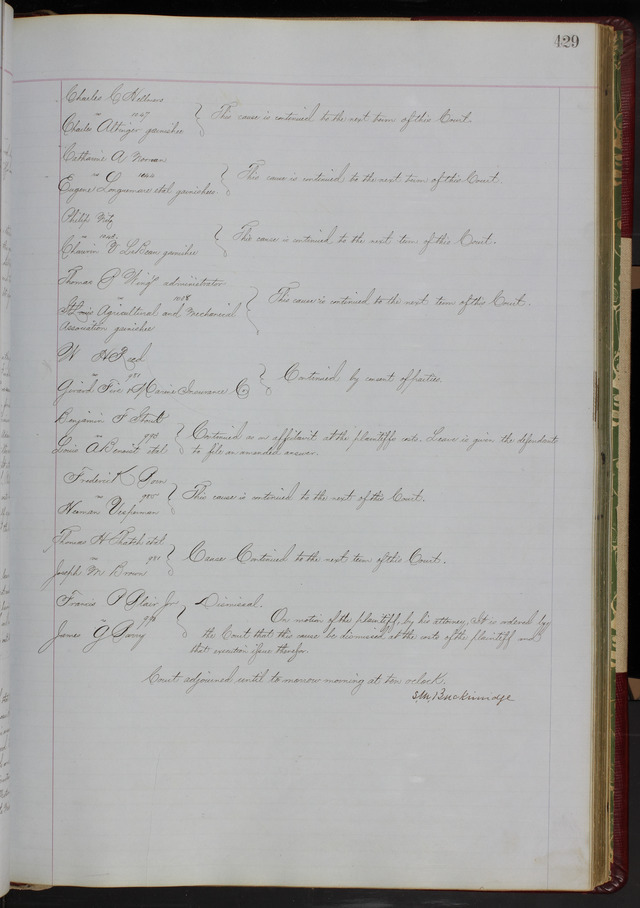 429
Charles C
vs 1047
Charles Altinger garnishee
This cause is continued to the next term of this Court.
Catharine A Noonan
vs 1044
Eugene Longuemare etal garnishees
This cause is continued to the next term of this Court.
Philip
vs
Chauvin V LeBeau garnishee
This cause is continued to the next term of this Court.
Thomas P Wing administrator
vs 1058
St Louis Agricultural and Mechanical
Association garnishee
This cause is continued to the next term of this Court.
W H Reed
vs 971
Girard Fire & Marine Insurance Co
Continued by consent of parties.
Benjamin F Stout
vs
Louis A Benoist etal
Continued as on affidavit at the plaintiffs costs. Leave is given the defendants
to file an amended answer.
Frederick Dorn
vs
Herman
This cause is continued to the next of this Court.
Thomas H etal
vs 981
Joseph M Brown
Cause Continued to the next term of this Court.
Francis P Blair Jr
vs
James G Barry
Dismissal.
On motion of the plaintiff, by his attorney, It is ordered by
the Court that this cause be dismissed at the costs of the plaintiff and
that execution issue therefor.
Court adjourned until to morrow morning at ten oclock.
S.M. Breckinridge